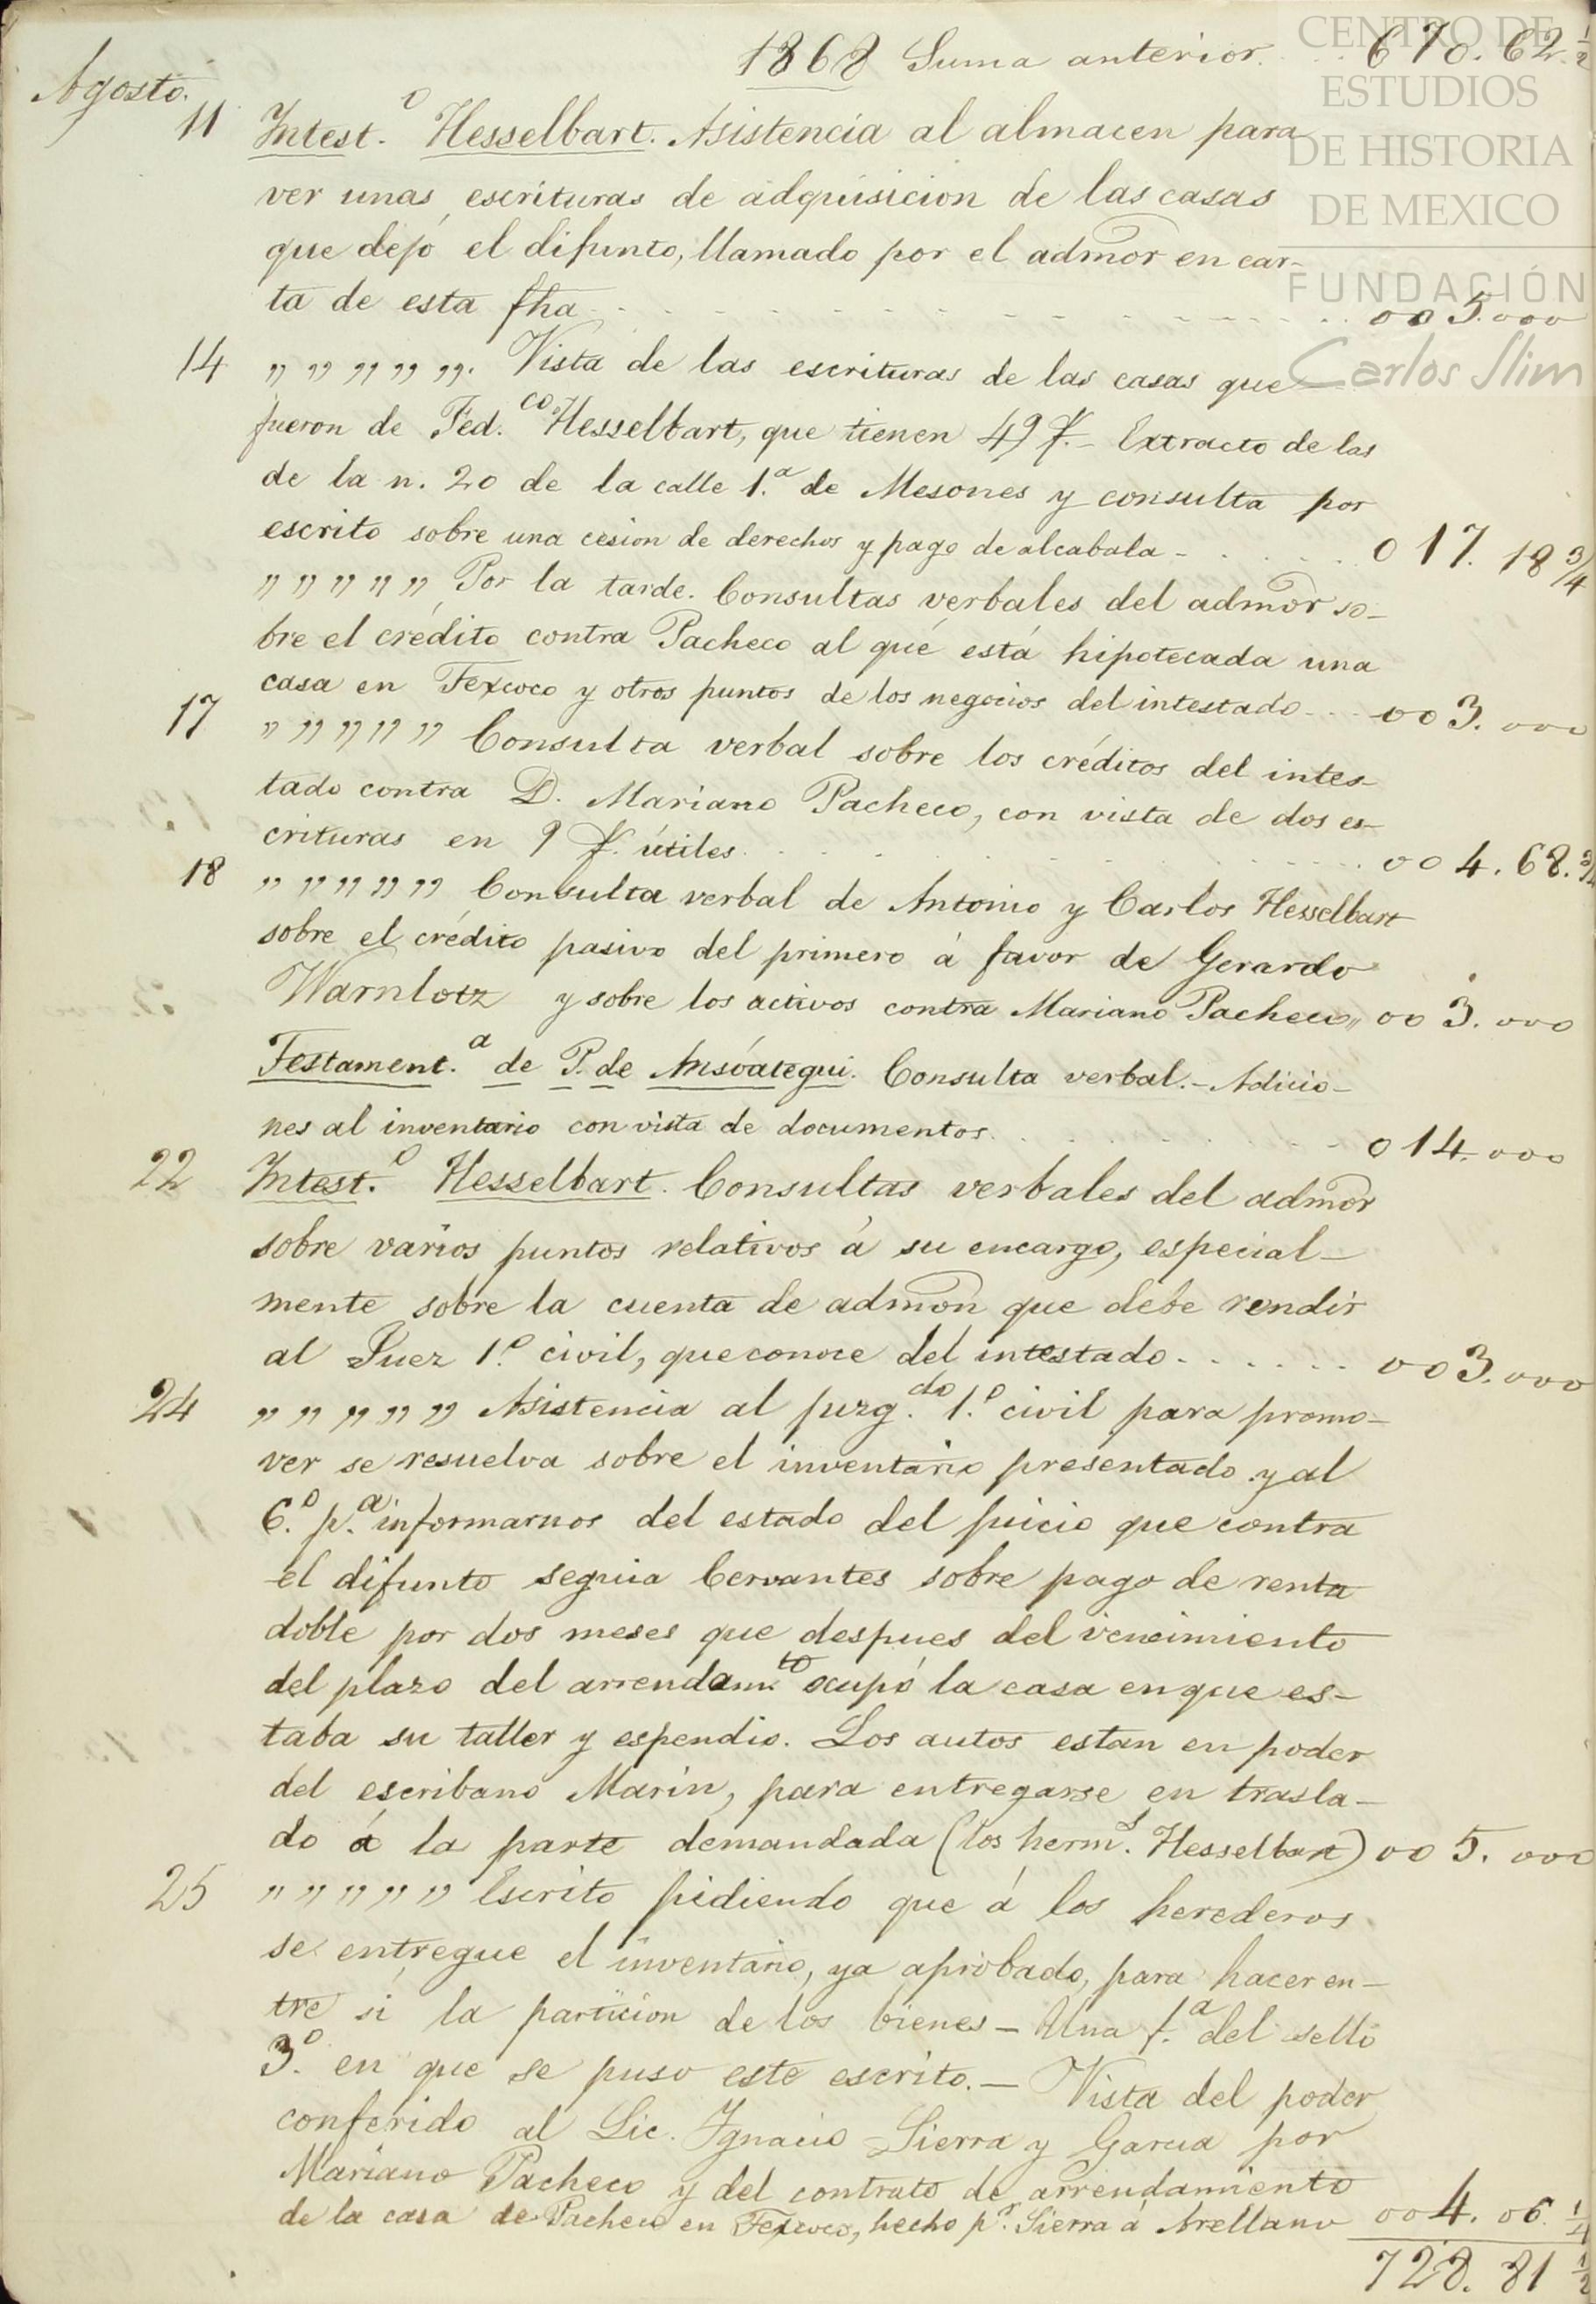 1868 Suma anterior. . . 670. 62. 1/2
Agosto.
11 Intest.o Hesselbart. Asistencia al almacen para
ver unas escrituras de adquisicion de las casas
que dejó el difunto, llamado por el admor en car-
ta de esta fha. . . . . . . . . . 005.000
14 ,, ,, ,, ,, ,,. Vista de las escrituras de las casas que
fueron de Fed.co Hesselbart, que tienen 49 f.- Extracto de las
de la n. 20 de la calle 1.a de Mesones y consulta por
escrito sobre una cesion de derechos y pago de alcabala - . . . . 0 17. 18 3/4
,, ,, ,, ,, ,, Por la tarde. Consultas verbales del admor so-
bre el crédito contra Pacheco al que está hipotecada una
casa en Texcoco y otros puntos de los negocios del intestado - - - 003. 000
17 ,, ,, ,, ,, ,, Consulta verbal sobre los créditos del intes-
tado contra D. Mariano Pacheco, con vista de dos es-
crituras en 9 f. útiles. . . . . . . . 00 4. 68. 3/4
18 ,, ,, ,, ,, ,, Consulta verbal de Antonio y Carlos Hesselbart
sobre el crédito pasivo del primero á favor de Gerardo
Warnlotz y sobre los activos contra Mariano Pacheco,, 00 3. 000
Testament.a de P. de Ansóategui. Consulta verbal.- Adicio-
nes al inventario con vista de documentos. . . . . . . 0 14. 000
22 Intest.o Hesselbart. Consultas verbales del admor
sobre varios puntos relativos á su encargo, especial-
mente sobre la cuenta de admon que debe rendir
al Juez 1.o civil, que conoce del intestado. . . . . . . 003. 000
24 ,, ,, ,, ,, ,, Asistencia al juzg.do 1.o civil para promo-
ver se resuelva sobre el inventario presentado y al
6.o p.a informarnos del estado del juicio que contra
el difunto seguia Cervantes sobre pago de renta
doble por dos meses que despues del vencimiento
del plazo del arrendam.to ocupó la casa en que es-
taba su taller y espendio. Los autos estan en poder
del escribano Marin, para entregarse en trasla-
do á la parte demandada (los herm.s Hesselbart) 00 5. 000
25 ,, ,, ,, ,, ,, Escrito pidiendo que á los herederos
se entregue el inventario, ya aprobado, para hacer en-
tre sí la particion de los bienes - Una f.a del sello
3.o en que se puso este escrito. - Vista del poder
conferido al Lic. Ignacio Sierra y Garcia por
Mariano Pacheco y del contrato de arrendamiento
de la casa de Pacheco en Texcoco, hecho p.r Sierra á Arellano 00 4. 06. 1/4
728. 81 1/2
CENTRO DE
ESTUDIOS
DE HISTORIA
DE MEXICO
FUNDACIÓN
Carlos Slim